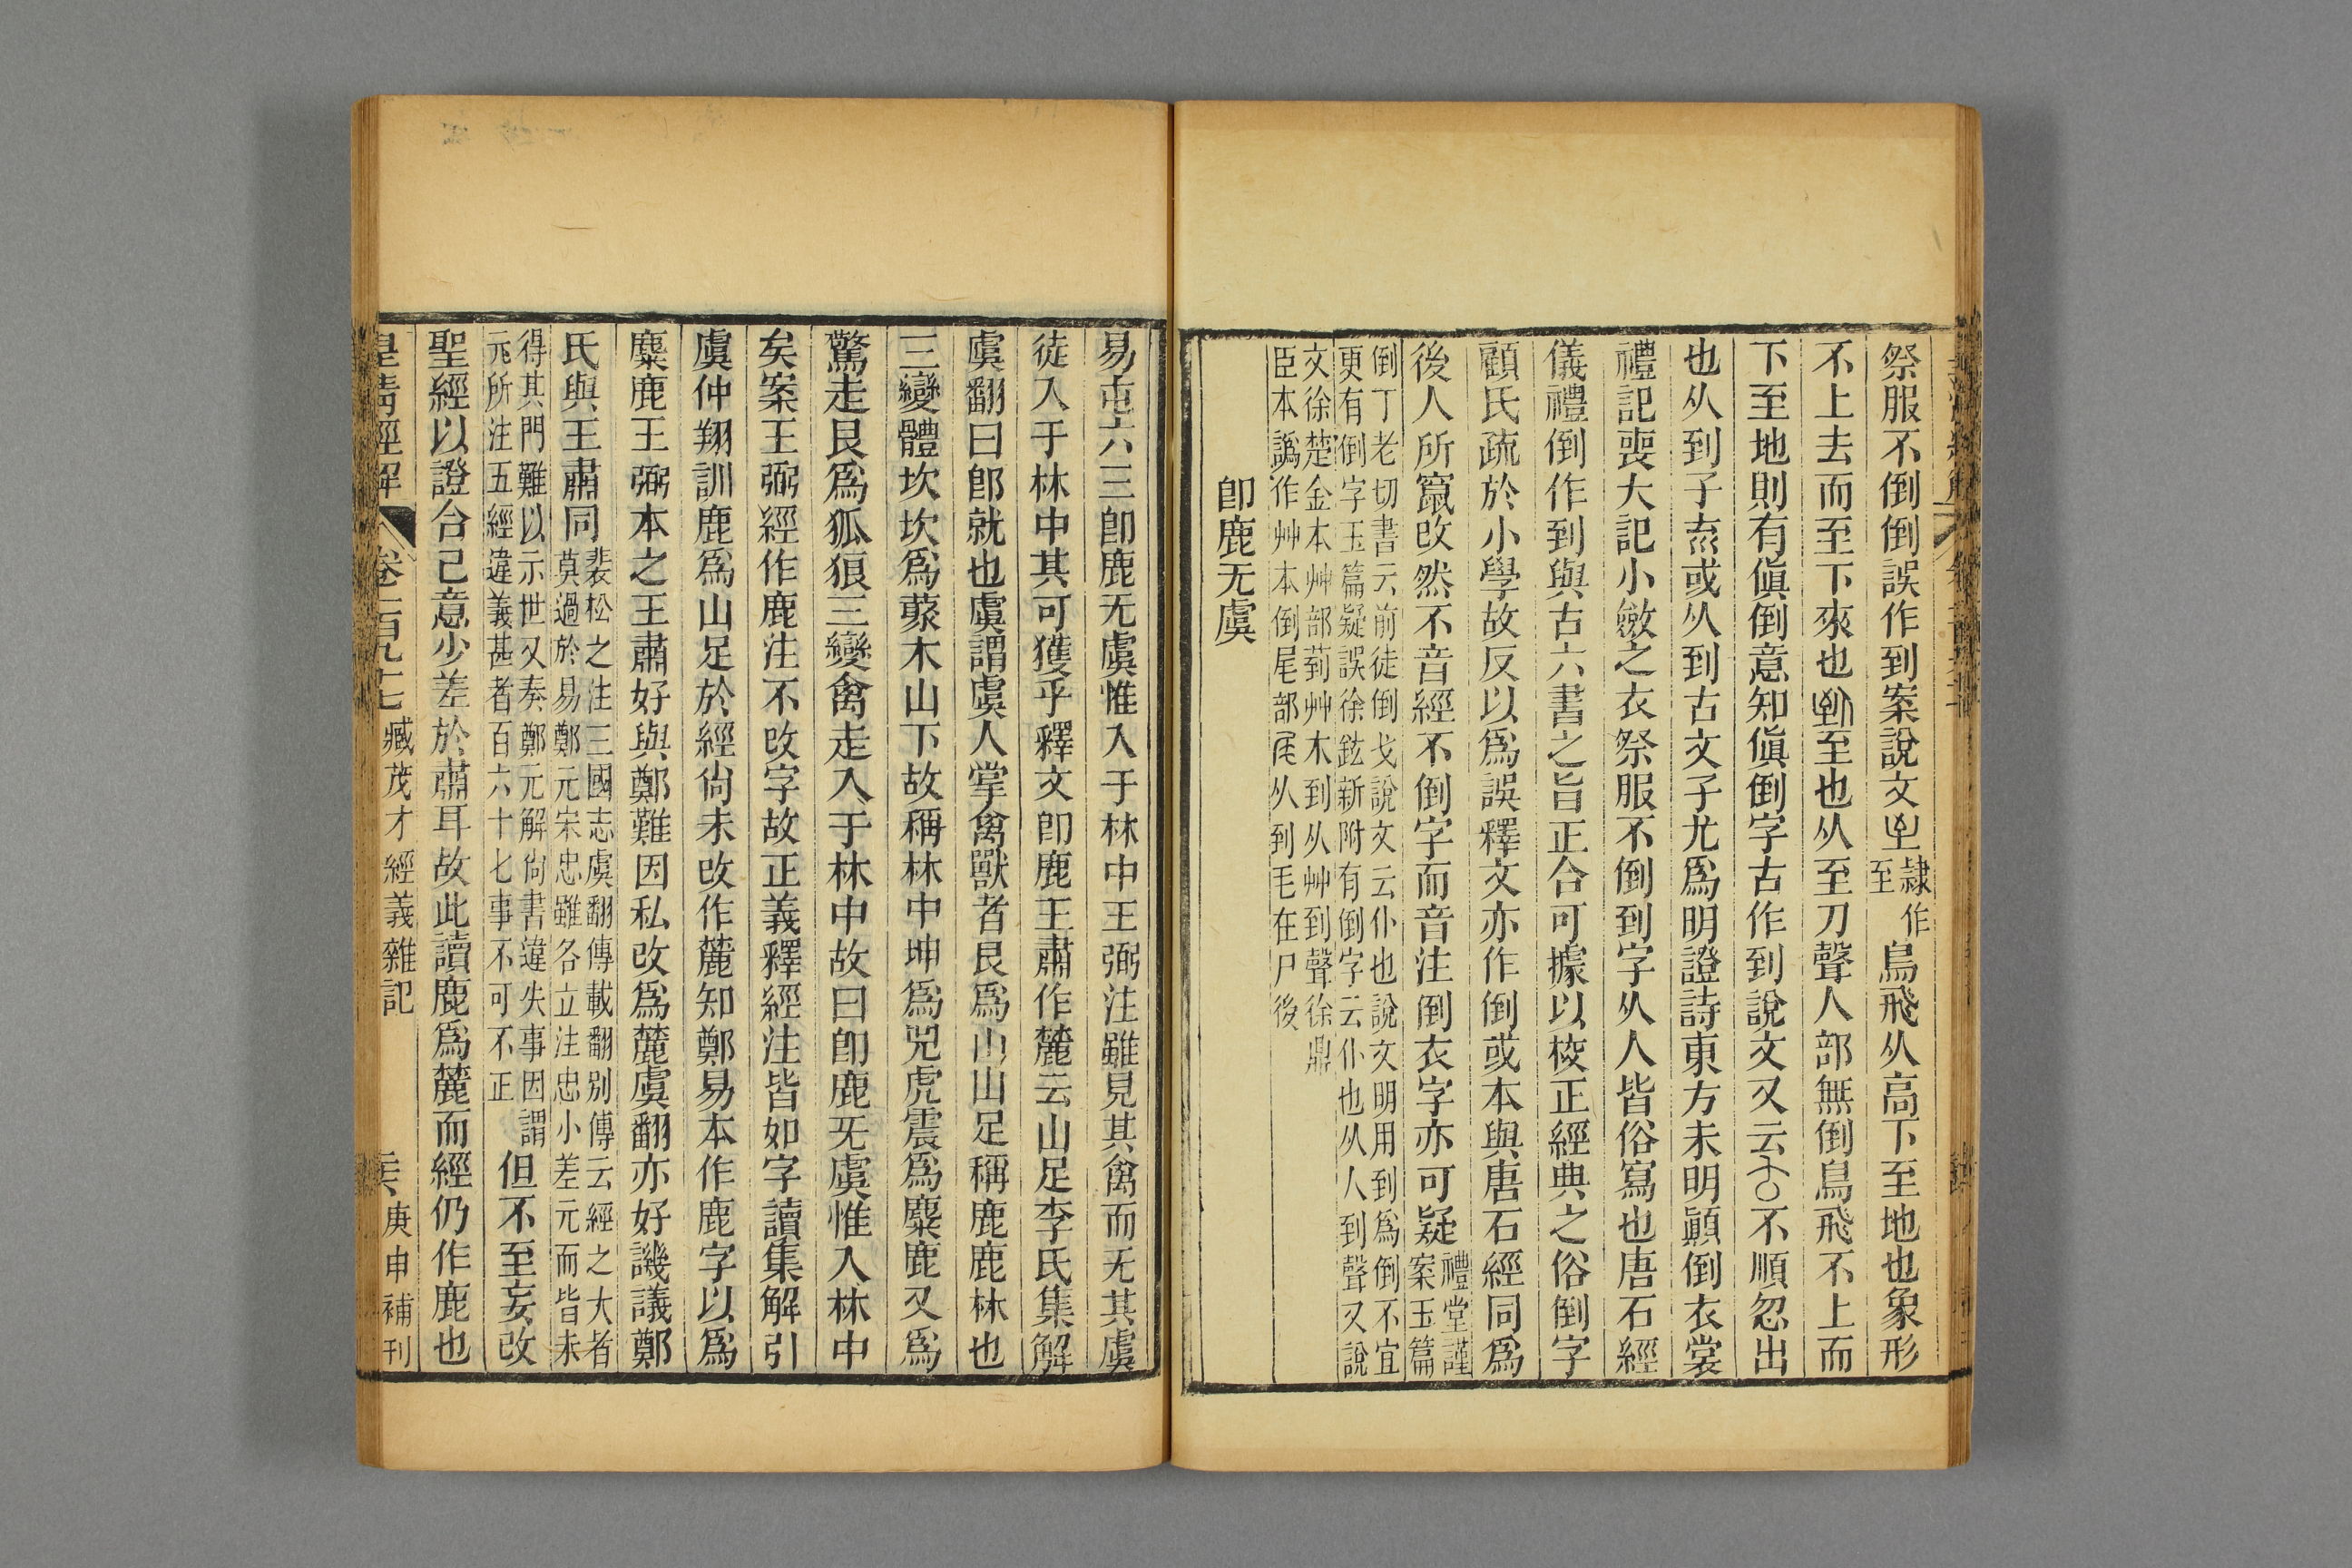 祭服不倒倒誤作到案說文𦤳隸作至鳥飛从高下至地也象形
不上去而至下來也𦤶至也从至刀聲人部無倒鳥飛不上而
下至地則有傎倒意知傎倒字古作到說文又云𠫓不順忽出
也从到子㐬或从到古文子尤爲明證詩東方未明顚倒衣裳
禮記喪大記小斂之衣祭服不倒到字从人皆俗寫也唐石經
儀禮倒作到與古六書之旨正合可據以校正經典之俗倒字
顧氏疏於小學故反以爲誤釋文亦作倒或本與唐石經同爲
後人所竄改然不音經不倒字而音注倒衣字亦可疑禮堂謹案玉篇
倒丁老切書云前徒倒戈說文云仆也說文明用到爲倒不宜
更有倒字玉篇疑誤徐鉉新附有倒字云仆也从人到聲又說
文徐楚金本艸部菿艸木到从艸到聲徐鼎
臣本譌作艸本倒尾部𡱈从到毛在尸後
卽鹿无虞
易屯六三卽鹿无虞惟入于林中王弼注雖見其禽而无其虞
徒入于林中其可獲乎釋文卽鹿王肅作麓云山足李氏集解
虞翻曰卽就也虞謂虞人掌禽獸者艮爲山山足稱鹿鹿林也
三變體坎坎爲蔂木山下故稱林中坤爲兕虎震爲麋鹿又爲
驚走艮爲狐狼三變禽走入于林中故曰卽鹿无虞惟入林中
矣案王弼經作鹿注不改字故正義釋經注皆如字讀集解引
虞仲翔訓鹿爲山足於經尙未改作麓知鄭易本作鹿字以爲
麋鹿王弼本之王肅好與鄭難因私改爲麓虞翻亦好譏議鄭
氏與王肅同裴松之注三國志虞翻傳載翻別傳云經之大者
莫過於易鄭元宋忠雖各立注忠小差元而皆未
得其門難以示世又奏鄭元解尙書違失事因謂
元所注五經違義甚者百六十七事不可不正但不至妄改
聖經以證合己意少差於肅耳故此讀鹿爲麓而經仍作鹿也
皇淸經解 卷二百九十七 臧茂才經義雜記 庚申補刊